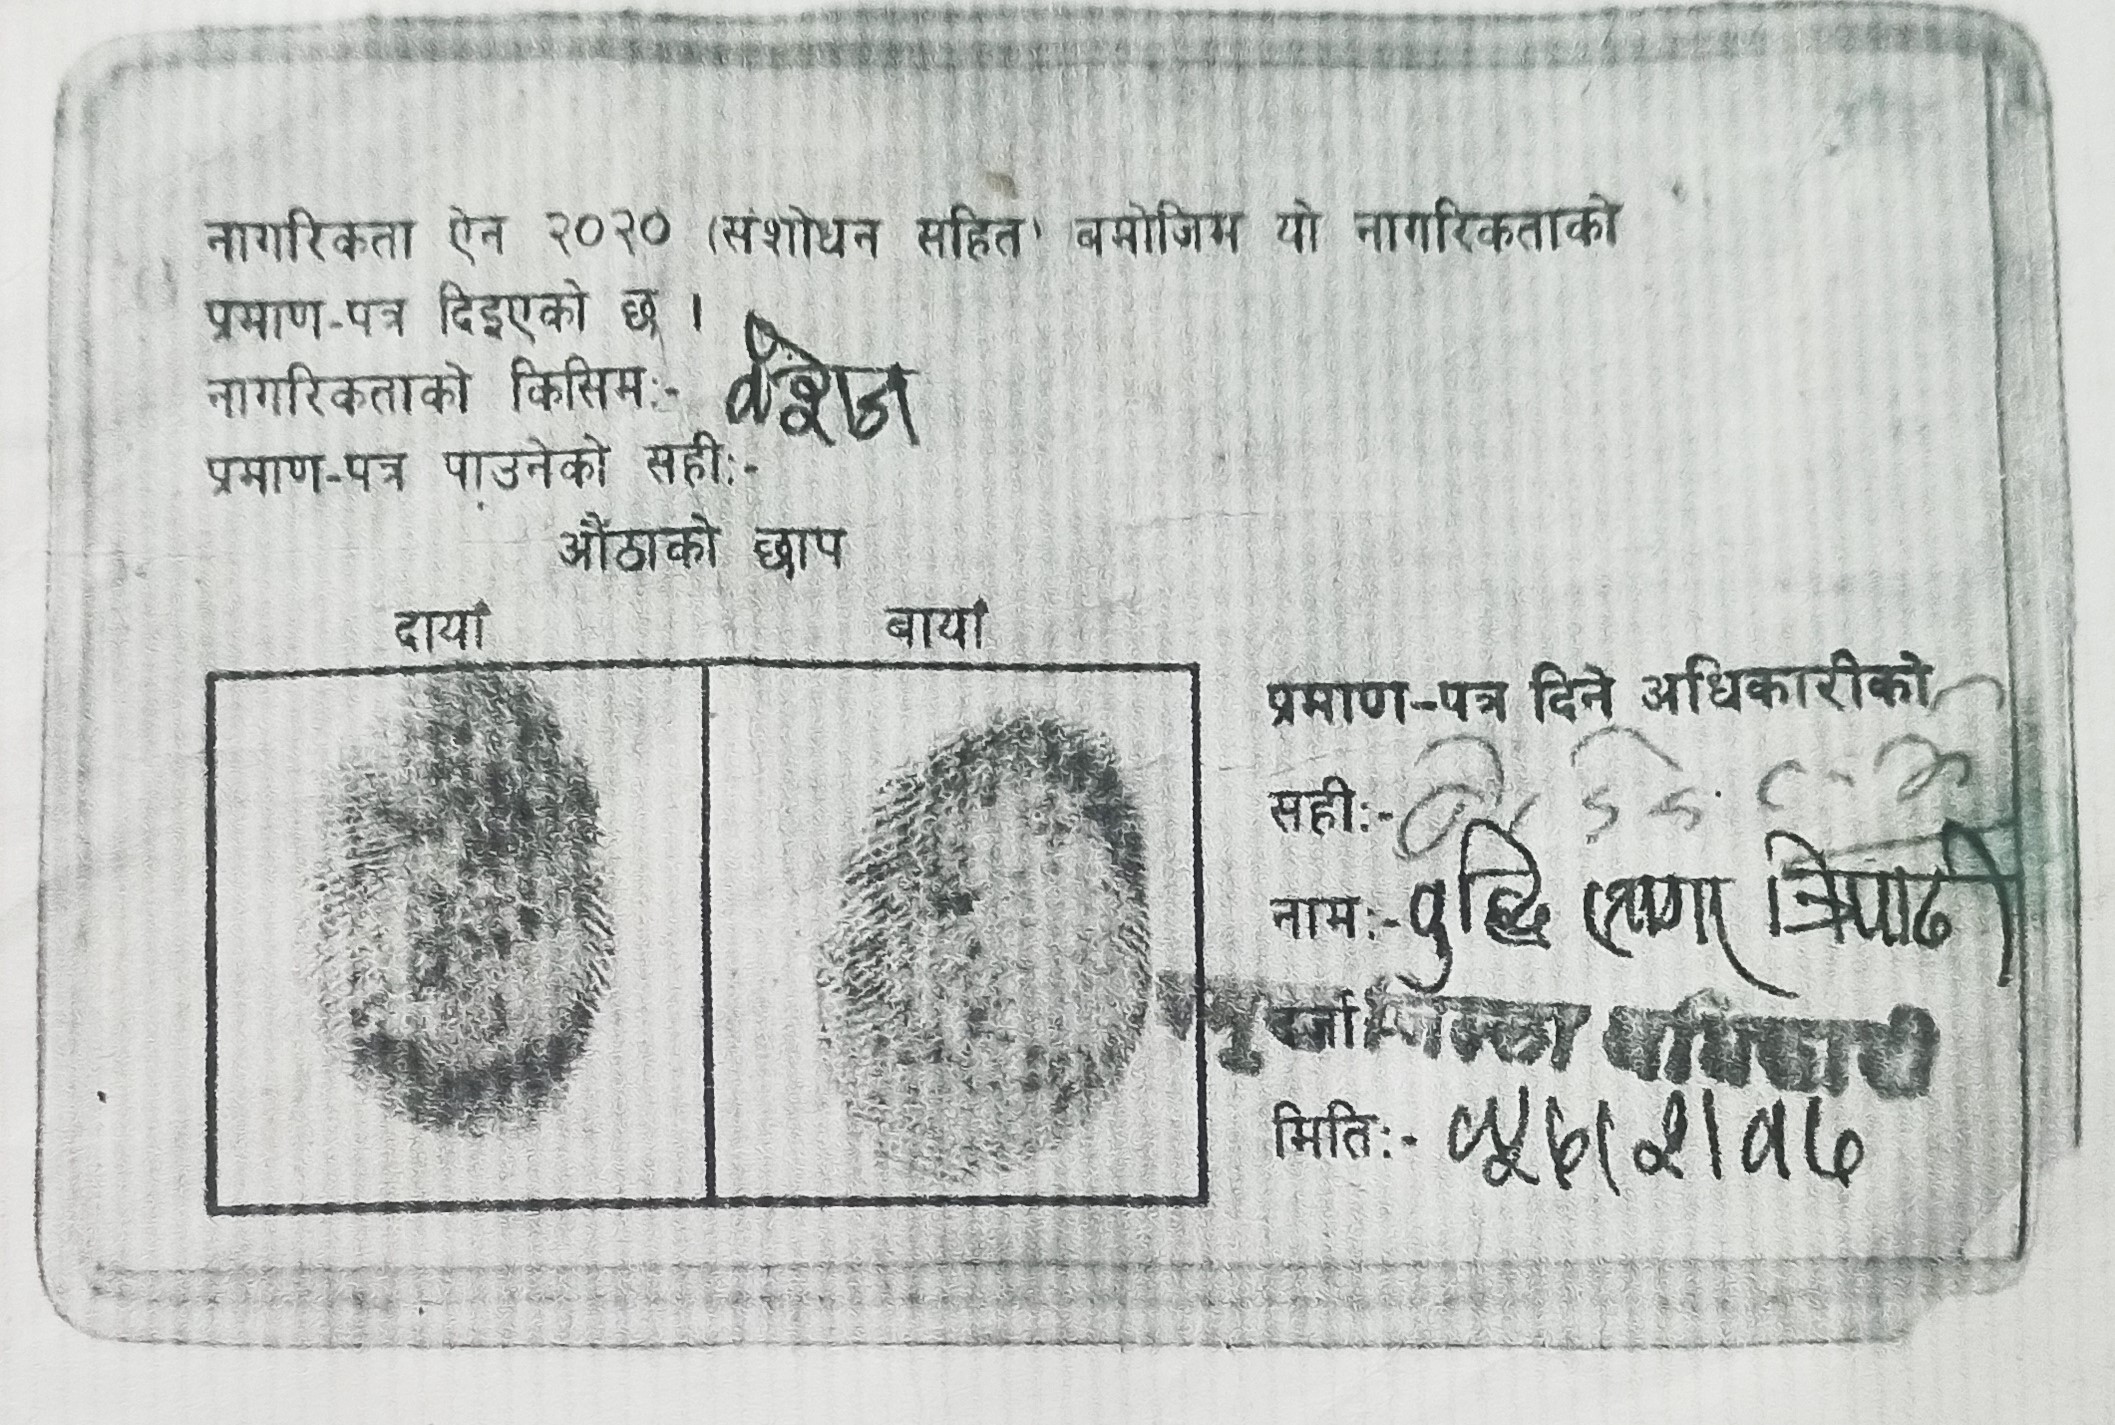 नागरिकता ऐन २०२० (संशोधन सहित) बमोजिम यो नागरिकताको
प्रमाण-पत्र दिइएको छ ।
नागरिकताको किसिम:- वंशज
प्रमाण-पत्र पाउनेको सही:-
औंठाको छाप
दायाँ बायाँ
प्रमाण-पत्र दिने अधिकारीको
सही:-
नाम:- बुद्धि सागर त्रिपाठी
दर्जा
मिति:-